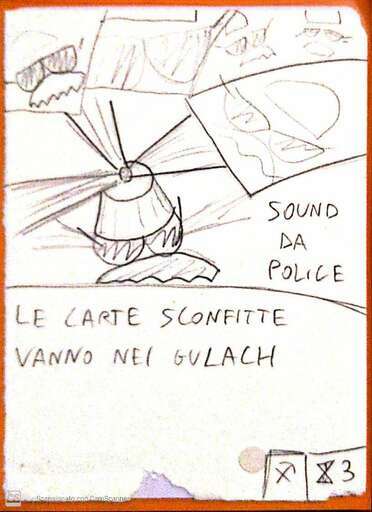 SOUND
DA
POLICE
LE CARTE SCONFITTE
VANNO NEI GULACH
3
Scansionato con CamScanner